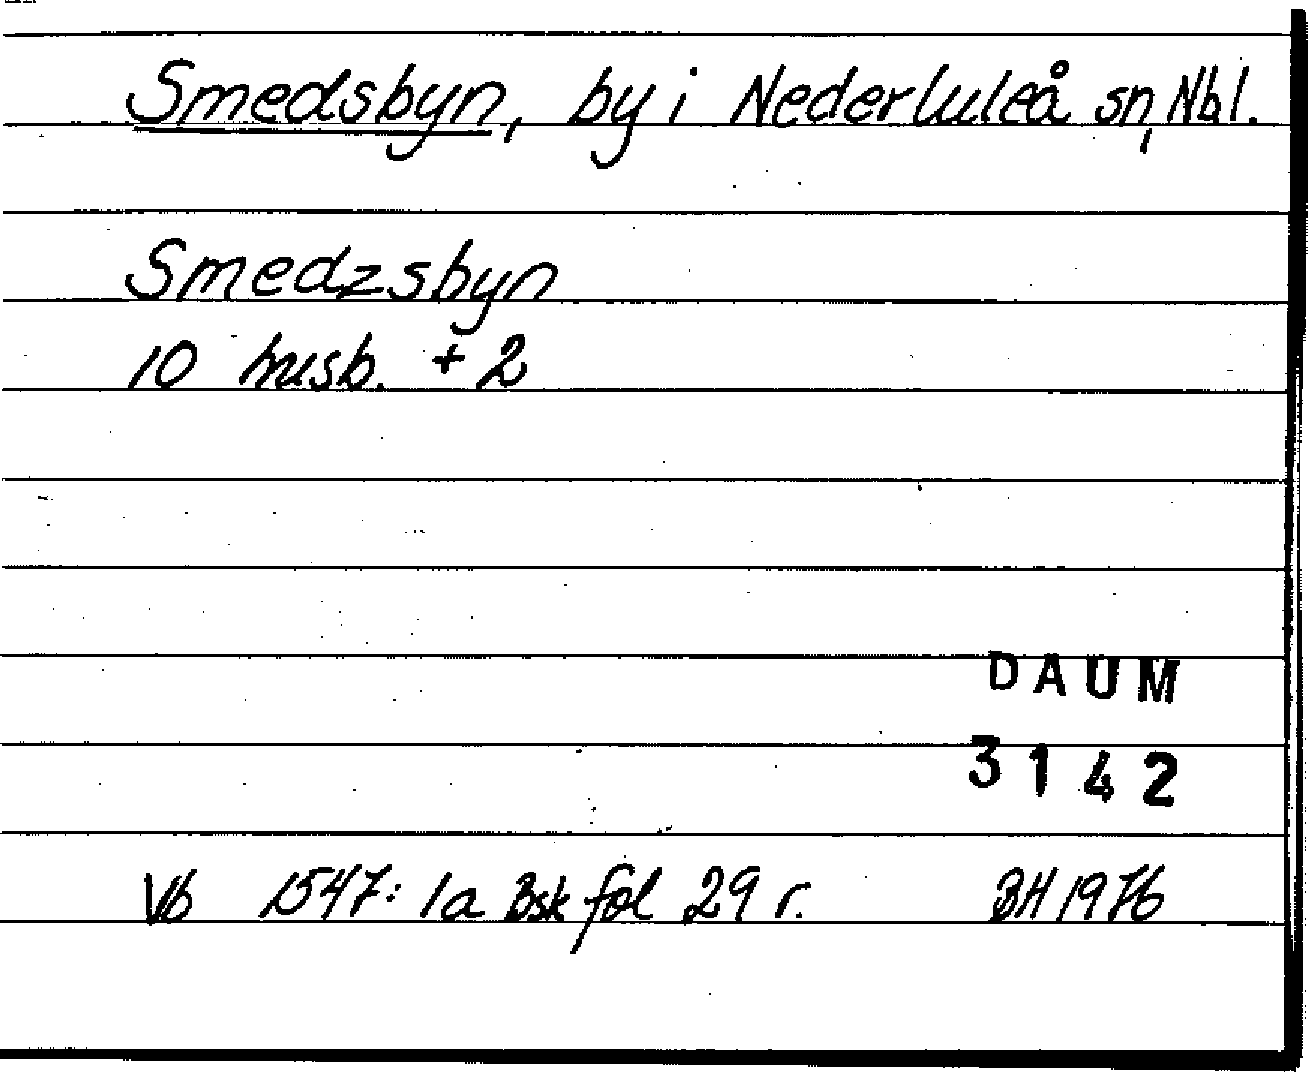 Smedsbyn, by i Nederluleå sn, Nbl.
Smedzsbyn
10 husb. + 2
DAUM
3142
Vb 1547: 1a Bsk fol 29 r. BH 1976